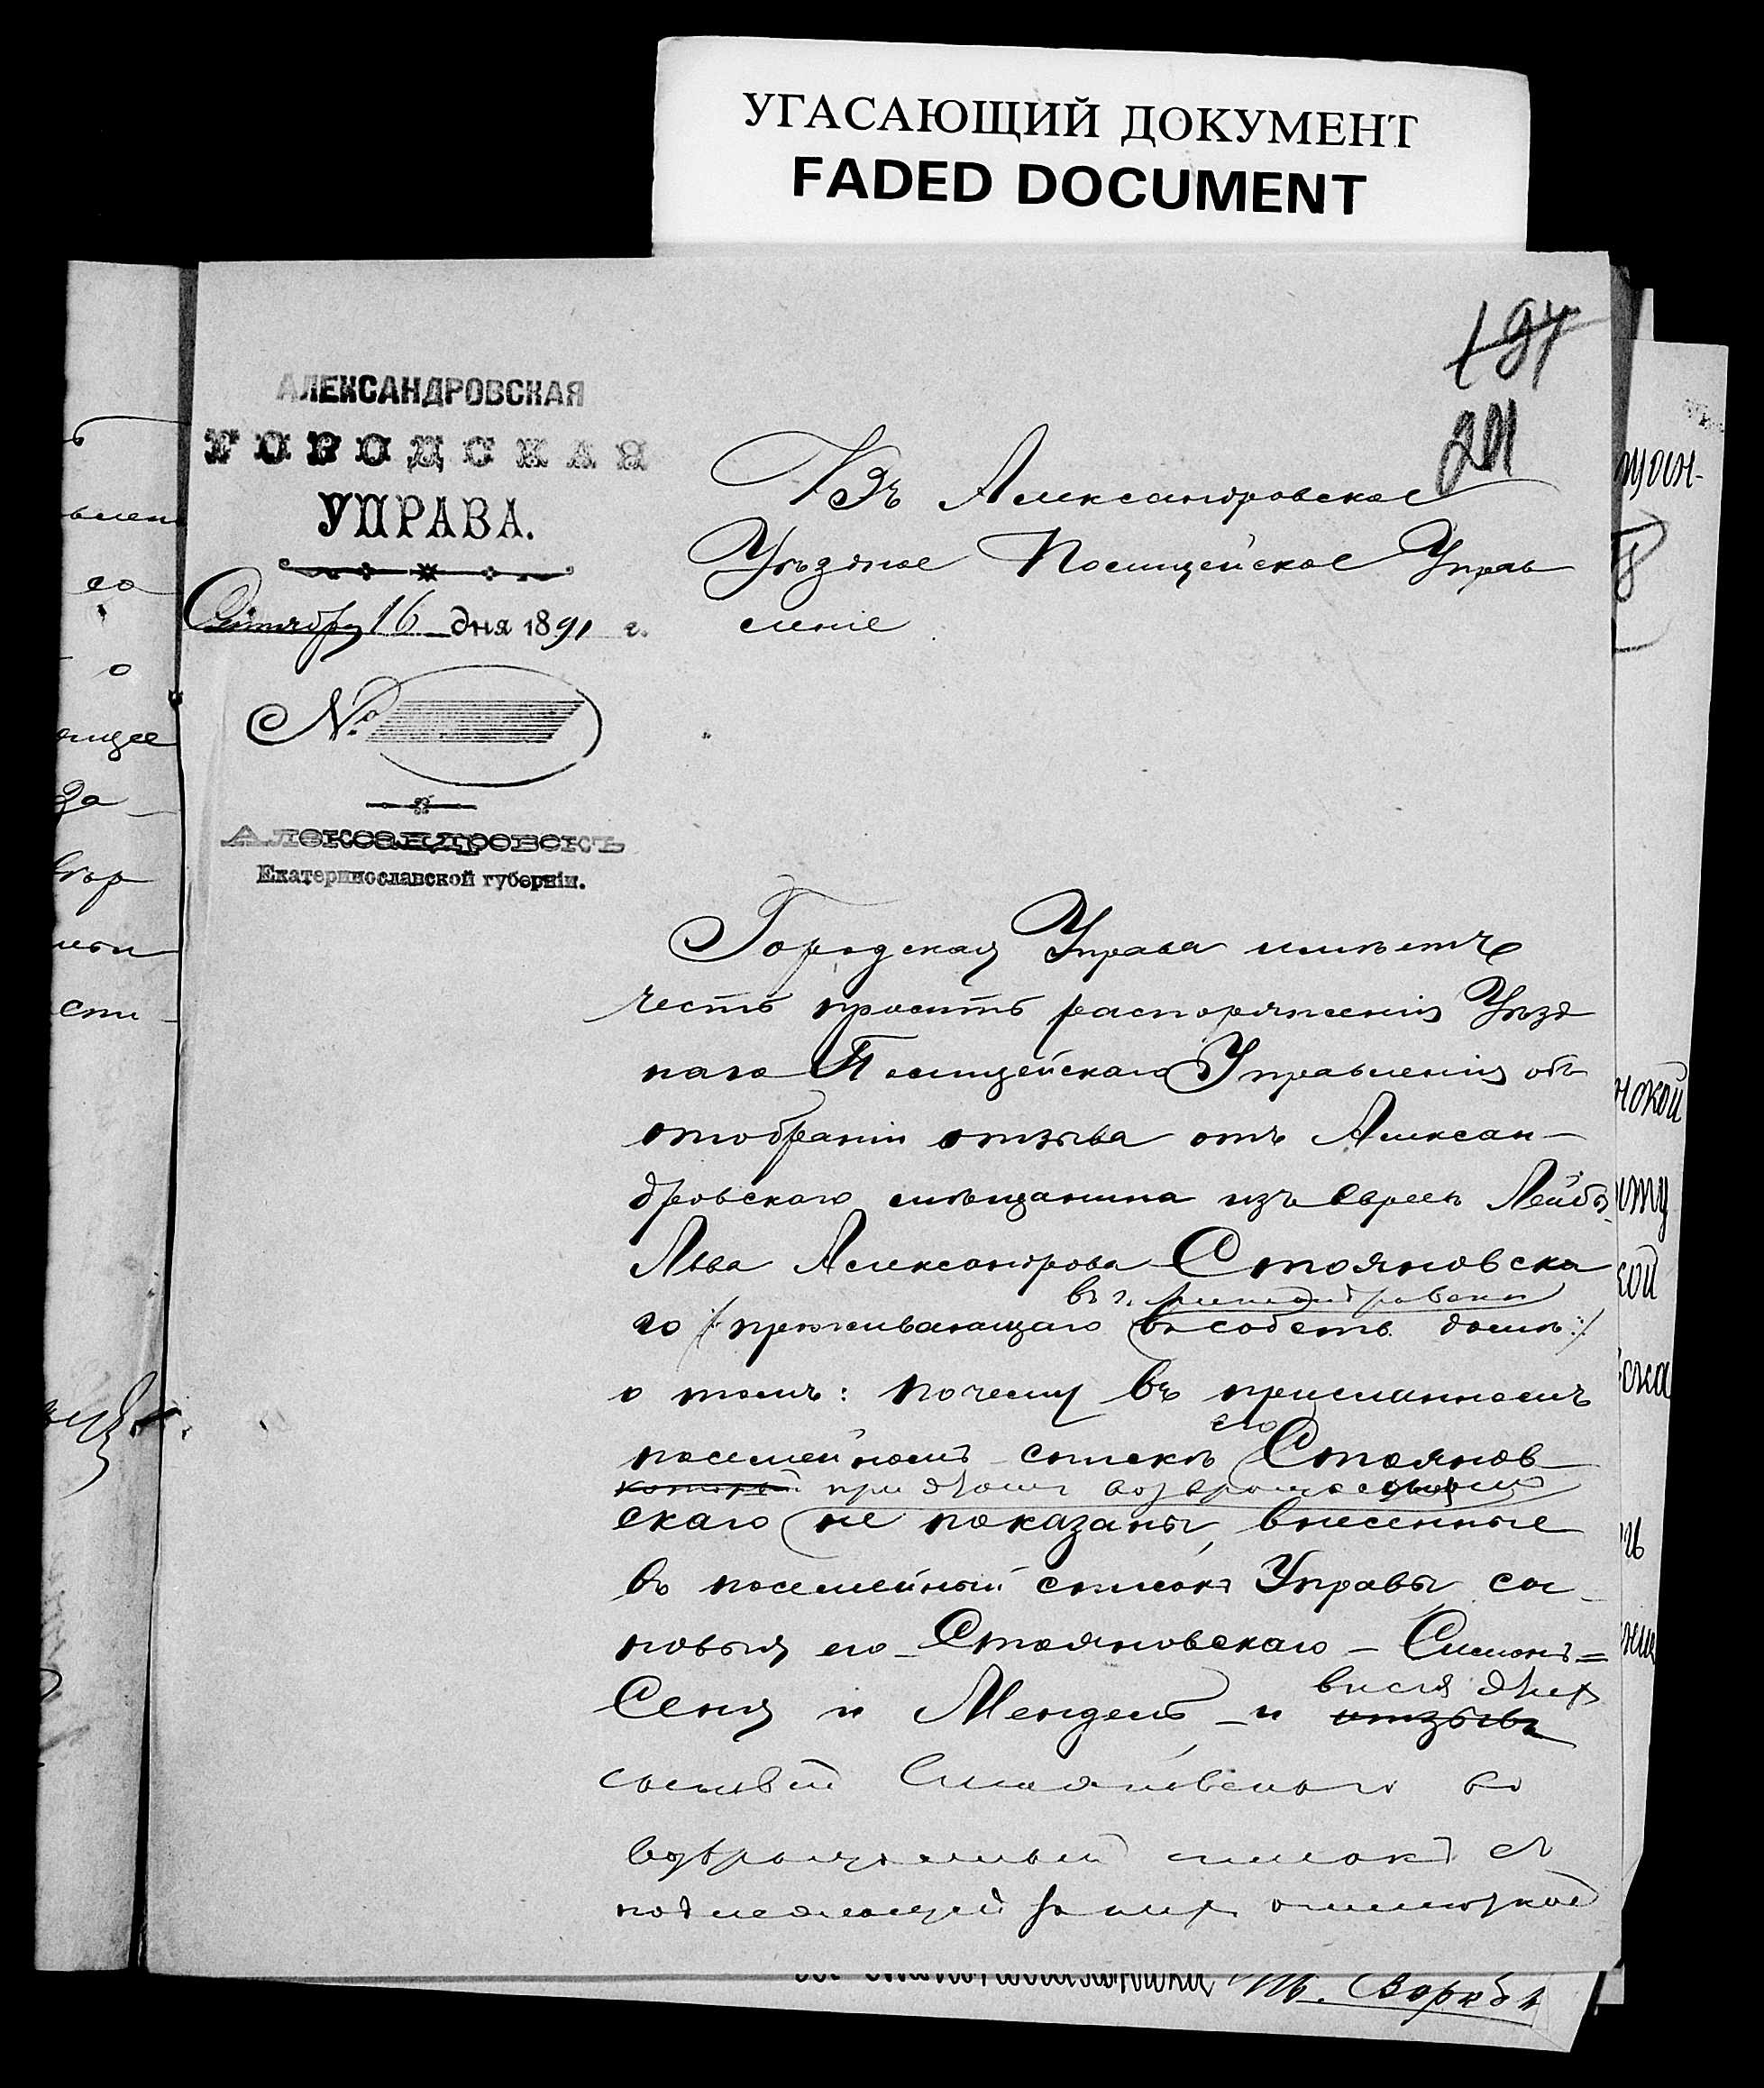 УГАСАЮЩИЙ ДОКУМЕНТ
FADED DOCUMENT
197
201
АЛЕКСАНДРОВСКАЯ
ГОРОДСКАЯ
УПРАВА.
Сентября 16 дня 1891 г.
№
Александровскъ
Екатеринославской губерніи.
Въ Александровское
Уѣздное Полицейское Управ
леніе
Городская Управа имѣетъ
честь просить распоряженія Уѣзд
наго Полицейскаго Управленія объ
отобраніи отзыва отъ Алексан-
дровскаго мѣщанина изъ евреевъ Лейбы
Льва Александрова Стояновска
въ г. Александровскѣ
го /:проживающаго въ собств. домѣ:/
о томъ: почему въ присланномъ
его
посемейномъ спискѣ Стоянов
который при этомъ возвращается
скаго не показаны, внесенные
въ посемейный списокъ Управы сы-
новья его Стояновскаго - Симонъ=
Сеня и Мендель - и
внеся этих
отзывъ
сыновей Стояновскаго въ
возвращаемый списокъ съ
подлежащей о них отметкой